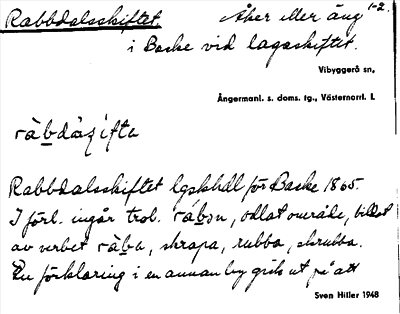 Rabbdalsskiftet Åker eller äng 1-2.
i Baske vid lagaskiftet.
Vibyggerå sn,
Ångermanl. s. doms. tg., Västernorrl. L
Rabbdalsskiftet lgskhdl för Baske 1865.
I förl. ingår trol. odlat område, bildat
av verbet skrapa, rubba, skrubba.
En förklaring i en annan by gick ut på att
Sven Hitler 1948